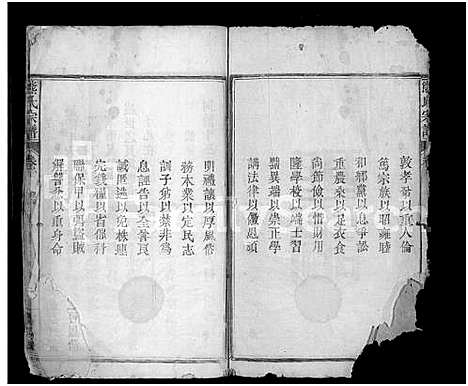 敦孝弟以重人倫
篤宗族以昭雍睦
和鄉黨以息爭訟
重農桑以足衣食
尚節儉以惜財用
隆學校以端士習
黜異端以崇正學
講法律以儆愚頑
明禮讓以厚風俗
務本業以定民志
訓子弟以禁非爲
息誣告以全善良
誡匿逃以免株連
完錢糧以省催科
聯保甲以弭盜賊
解讐忿以重身命
熊氏宗譜
卷